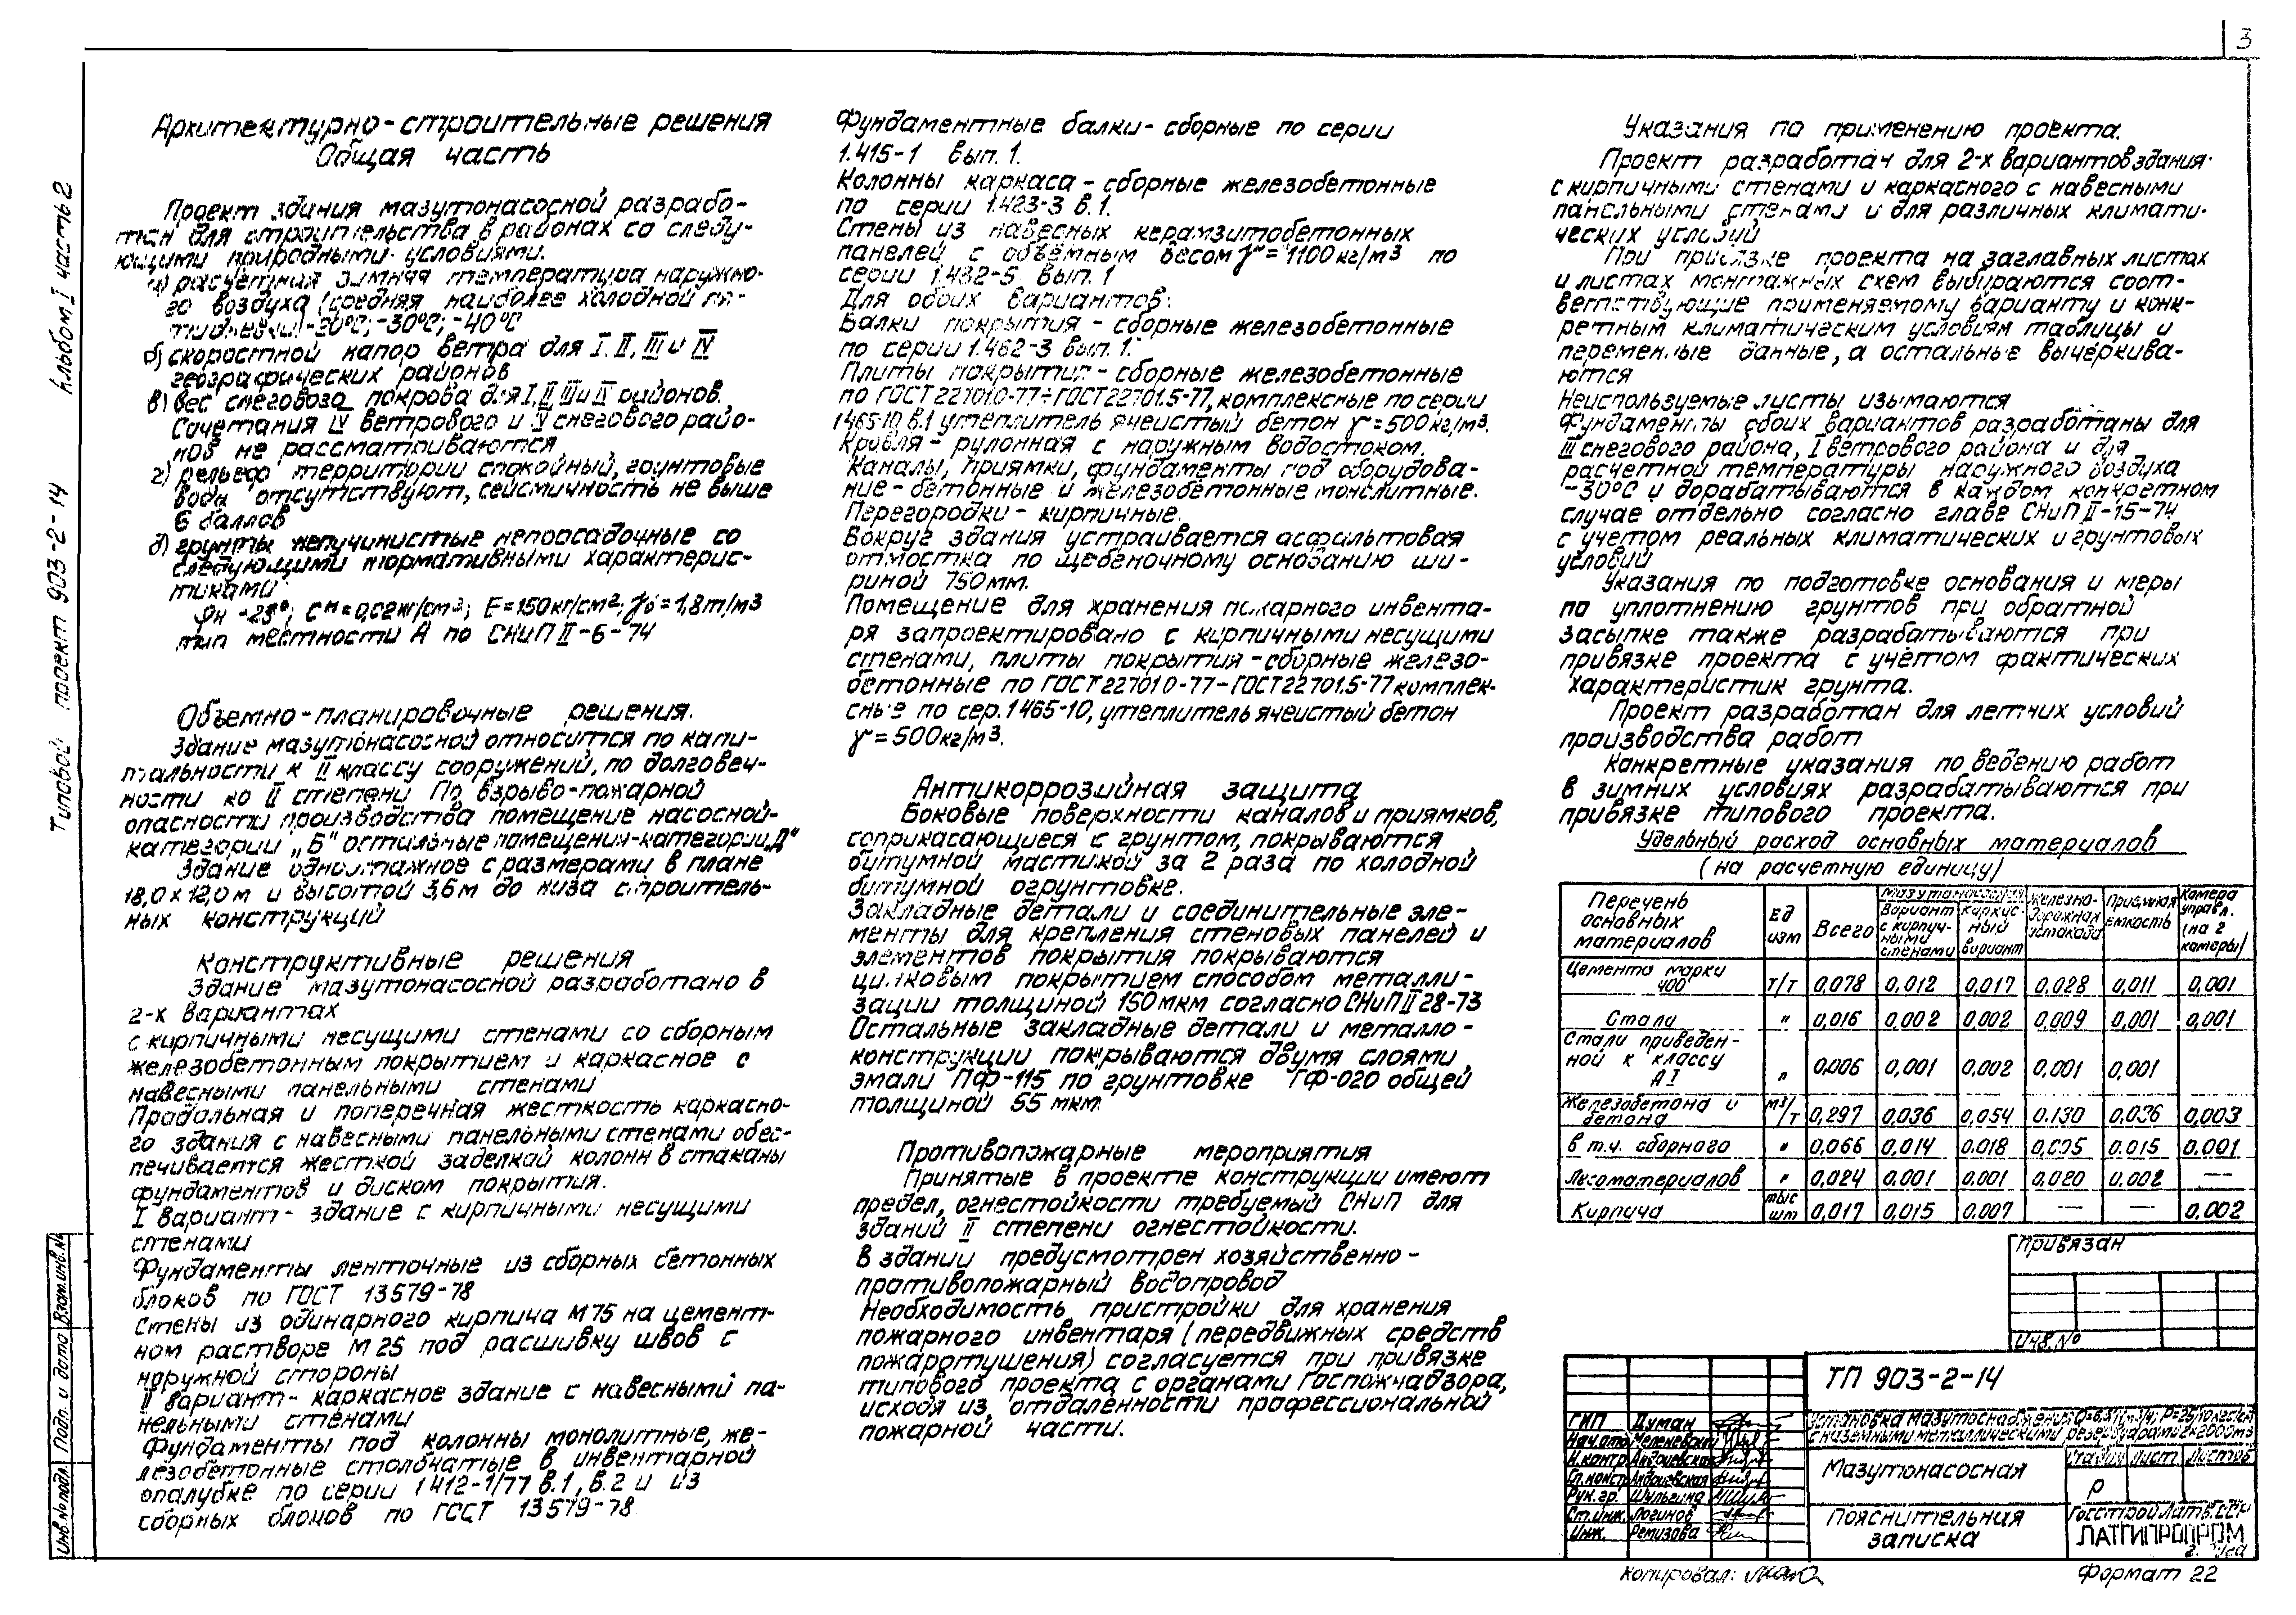 3
Альбом I часть 2
Типовой проект 903-2-14
Архитектурно-строительные решения
Общая часть
Проект здания мазутонасосной разрабо-
тан для строительства в районах со следу-
ющими природными условиями.
а) расчетная зимняя температура наружно-
го воздуха (средняя наиболее холодной пя-
тидневки) -20°С; -30°С; -40°С
б) скоростной напор ветра для I, II, III и IV
географических районов
в) вес снегового покрова для I, II, III и IV районов.
Сочетания IV ветрового и IV снегового райо-
нов не рассматриваются
г) рельеф территории спокойный, грунтовые
воды отсутствуют, сейсмичность не выше
6 баллов
д) грунты непучинистые непросадочные со
следующими нормативными характерис-
тиками
φн -28°; Сн = 0,02 кг/см²; Е=150 кг/см²; γо=1,8 т/м3
тип местности А по СНиП II-6-74
Объемно-планировочные решения.
Здание мазутонасосной относится по капи-
тальности к II классу сооружений, по долговеч-
ности ко II степени По взрыво-пожарной
опасности производства помещение насосной-
категории „Б" остальные помещения-категории „Д"
Здание одноэтажное с размерами в плане
18,0 х 12,0 м и высотой 3,6 м до низа строитель-
ных конструкций
Конструктивные решения
Здание мазутонасосной разработано в
2-х вариантах
с кирпичными несущими стенами со сборным
железобетонным покрытием и каркасное с
навесными панельными стенами
Продольная и поперечная жесткость каркасно-
го здания с навесными панельными стенами обес-
печивается жесткой заделкой колонн в стаканы
фундаментов и диском покрытия.
I вариант - здание с кирпичными несущими
стенами
Фундаменты ленточные из сборных бетонных
блоков по ГОСТ 13579-78
Стены из одинарного кирпича М75 на цемент-
ном растворе М25 под расшивку швов с
наружной стороны
II вариант - каркасное здание с навесными па-
нельными стенами
Фундаменты под колонны монолитные, же-
лезобетонные столбчатые в инвентарной
опалубке по серии 1412-1/77 в.1, в.2 и из
сборных блоков по ГОСТ 13579-78
Фундаментные балки - сборные по серии
1.415-1 вып. 1.
Колонны каркаса - сборные железобетонные
по серии 1.423-3 в.1.
Стены из навесных керамзитобетонных
панелей с объёмным весом γ = 1100 кг/м3 по
серии 1.432-5 вып. 1
Для обоих вариантов:
Балки покрытия - сборные железобетонные
по серии 1.462-3 вып. 1.
Плиты покрытия - сборные железобетонные
по ГОСТ 22701.0-77÷ГОСТ 22701.5-77, комплексные по серии
1465-10 в.1 утеплитель ячеистый бетон γ=500 кг/м³.
Кровля - рулонная с наружным водостоком.
Каналы, приямки, фундаменты под оборудова-
ние - бетонные и железобетонные монолитные.
Перегородки - кирпичные.
Вокруг здания устраивается асфальтовая
отмостка по щебеночному основанию ши-
риной 750 мм.
Помещение для хранения пожарного инвента-
ря запроектировано с кирпичными несущими
стенами, плиты покрытия - сборные железо-
бетонные по ГОСТ 22701.0-77-ГОСТ 22701.5-77 комплек-
сные по сер. 1465-10, утеплитель ячеистый бетон
γ=500 кг/м3.
Антикоррозийная защита
Боковые поверхности каналов и приямков,
соприкасающиеся с грунтом, покрываются
битумной мастикой за 2 раза по холодной
битумной огрунтовке.
Закладные детали и соединительные эле-
менты для крепления стеновых панелей и
элементов покрытия покрываются
цинковым покрытием способом металли-
зации толщиной 150 мкм согласно СНиП II 28-73
Остальные закладные детали и металло-
конструкции покрываются двумя слоями
эмали ПФ-115 по грунтовке ГФ-020 общей
толщиной 55 мкм
Противопожарные мероприятия
Принятые в проекте конструкции имеют
предел, огнестойкости требуемый СНиП для
зданий II степени огнестойкости.
В здании предусмотрен хозяйственно-
противопожарный водопровод
Необходимость пристройки для хранения
пожарного инвентаря (передвижных средств
пожаротушения) согласуется при привязке
типового проекта с органами Госпожнадзора,
исходя из отдаленности профессиональной
пожарной части.
Указания по применению проекта.
Проект разработан для 2-х вариантов здания
с кирпичными стенами и каркасного с навесными
панельными стенами и для различных климати-
ческих условий
При привязке проекта на заглавных листах
и листах монтажных схем выбираются соот-
ветствующие применяемому варианту и конк-
ретным климатическим условиям таблицы и
переменные данные, а остальные вычеркива-
ются
Неиспользуемые листы изымаются
Фундаменты обоих вариантов разработаны для
III снегового района, I ветрового района и для
расчетной температуры наружного воздуха
-30°С и дорабатываются в каждом конкретном
случае отдельно согласно главе СНиП II-15-74
с учетом реальных климатических и грунтовых
условий
Указания по подготовке основания и меры
по уплотнению грунтов при обратной
засыпке также разрабатываются при
привязке проекта с учетом фактических
характеристик грунта.
Проект разработан для летних условий
производства работ
Конкретные указания по ведению работ
в зимних условиях разрабатываются при
привязке типового проекта.
Удельный расход основных материалов
(на расчетную единицу)
Перечень основных материалов | Ед изм | Всего | Мазутонасосная | Вариант с кирпичными стенами | Каркасный вариант | Железнодорожная эстакада | Приемная емкость | Камера управл. (на 2 камеры)
Цемента марки 400 | т/т | 0,078 | 0,012 | 0,017 | 0,028 | 0,011 | 0,001
Стали | " | 0,016 | 0,002 | 0,002 | 0,009 | 0,001 | 0,001
Стали приведен-ной к классу АI | " | 0,006 | 0,001 | 0,002 | 0,001 | 0,001
Железобетона и бетона | м3/т | 0,297 | 0,036 | 0,054 | 0.130 | 0.036 | 0,003
в т.ч. сборного | " | 0,066 | 0,014 | 0.018 | 0,035 | 0.015 | 0.001
Лесоматериалов | " | 0,024 | 0.001 | 0.001 | 0.020 | 0.002 | —
Кирпича | тыс шт | 0,017 | 0,015 | 0.007 | — | — | 0.002
Привязан
Инв. №
ТП 903-2-14
с наземными металлическими резервуарами 2х2000м3
Мазутонасосная
Стадия Лист Листов
Р
Пояснительная
записка
Госстрой Латв.ССР
ЛАТГИПРОПРОМ
г. Рига
ГИП Думан
Нач.отд
Н.контр Андриевская
Гл.конст Андриевская
Рук.гр. Шульгина
Ст.инж. Логинов
Инж. Ремизова
Инв.№ подл. Подп. и дата Взам.инв.№
Копировал:
Формат 22